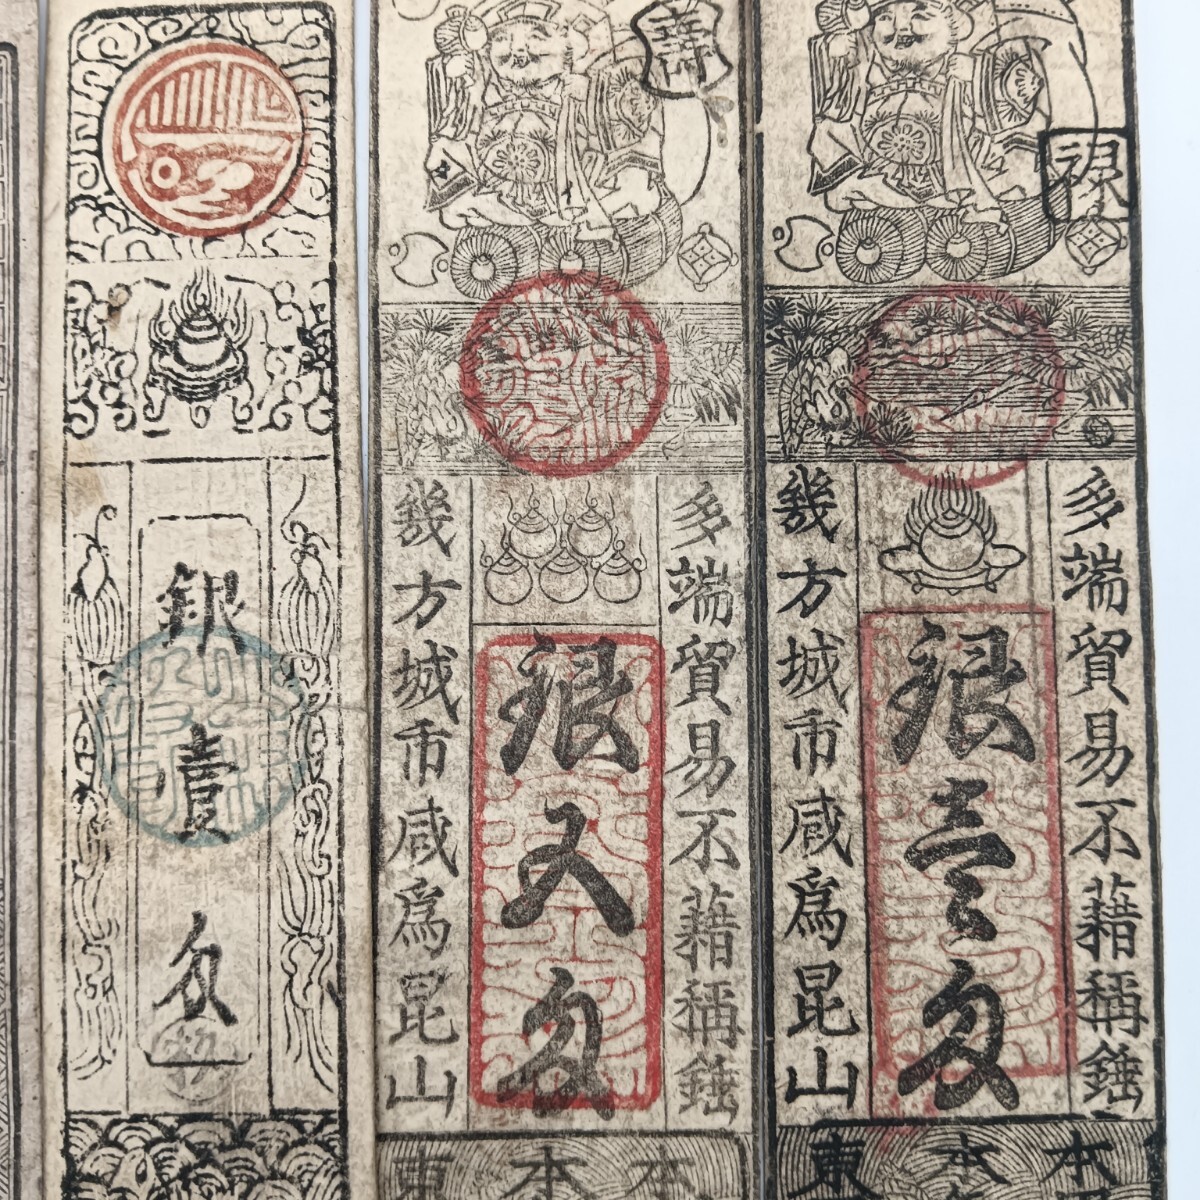 禄
多端貿易不藉稱錘
銀壹匁
幾方城市咸爲昆山
本
本
東
多端貿易不藉稱錘
銀五匁
幾方城市咸爲昆山
本
本
東
銀壹匁